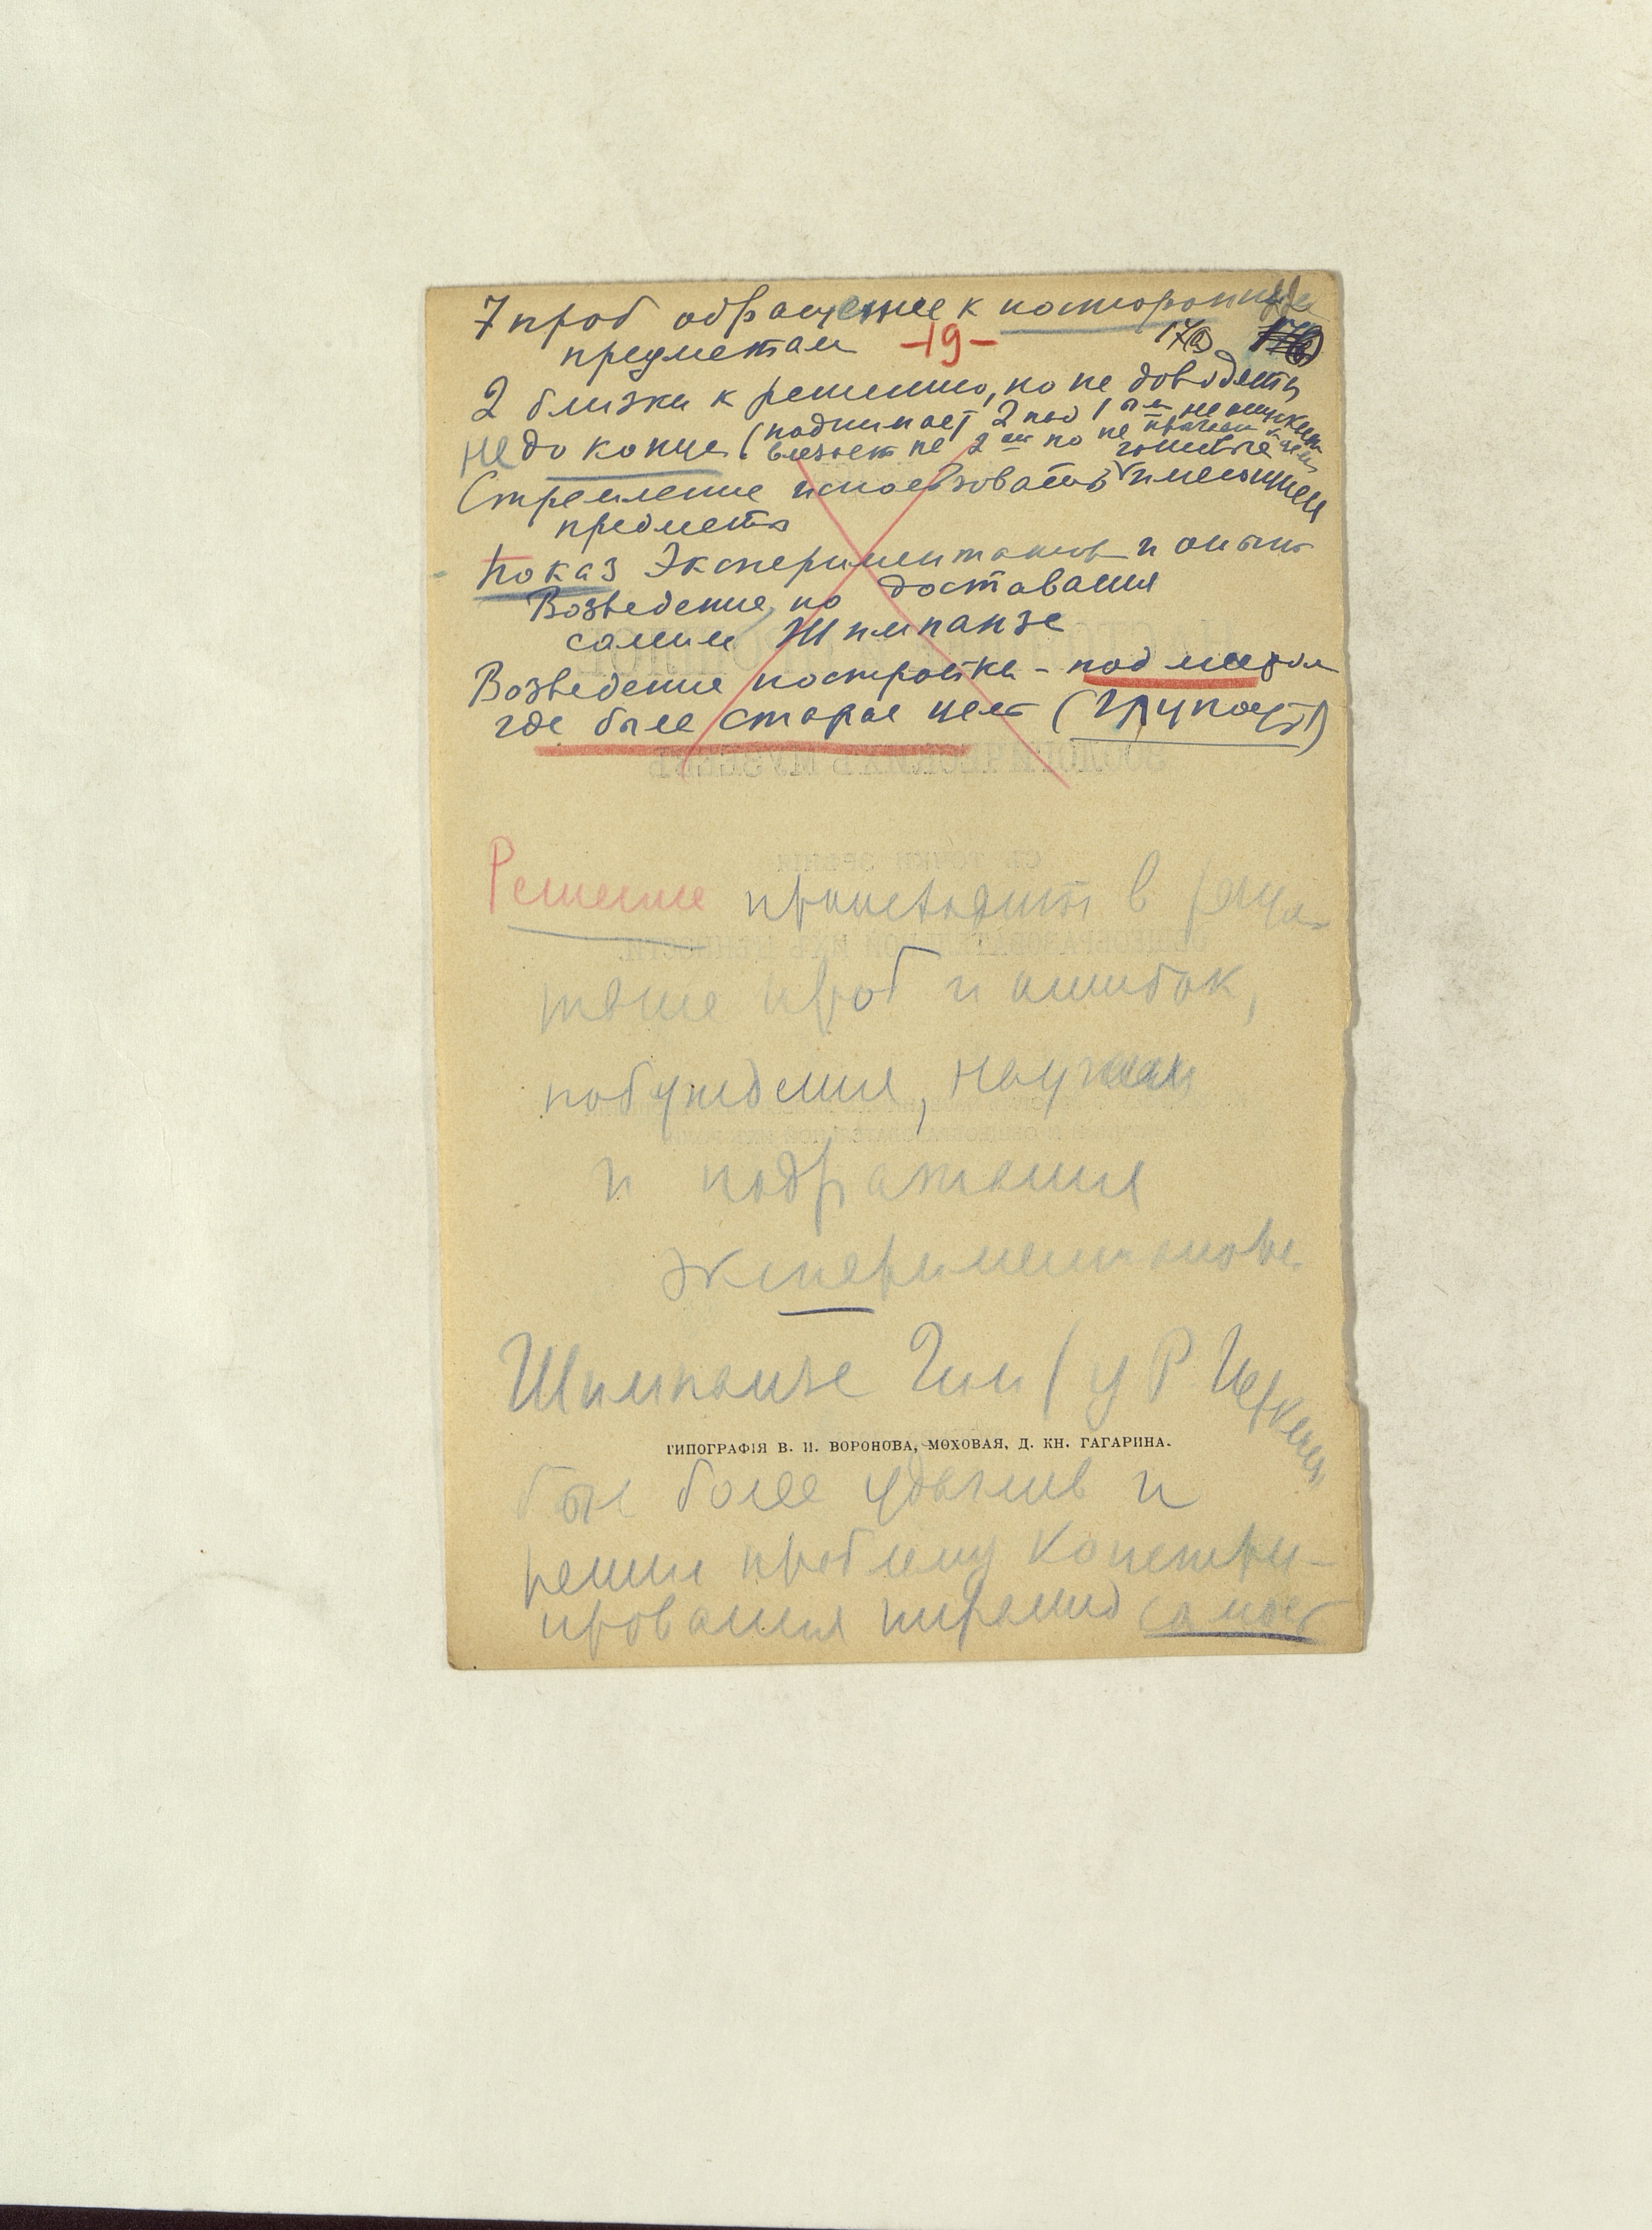 7 проб обращение к посторонним
предметам -19- 17(а)
2 близки к решению, но не доводятся
не до конца (поднимает 2 под 1
влезает на 2 но не
Стремление использовать имеющиеся
предметы
Показ Экспериментатов и опыт
Возведение, но доставания
самим Шимпанзе
Возведение постройки – под местом
где была старая цель (Глупость)
Решение происходит в резуль
тате проб и ошибок,
побуждения, научения
и подражания
экспериментатору
Шимпанзе Чим (у Р. Иеркеса
ТИПОГРАФІЯ В. И. ВОРОНОВА, МОХОВАЯ, Д. КН. ГАГАРИНА.
был более удачлив и
решил проблему констру-
ирования пирамид самост